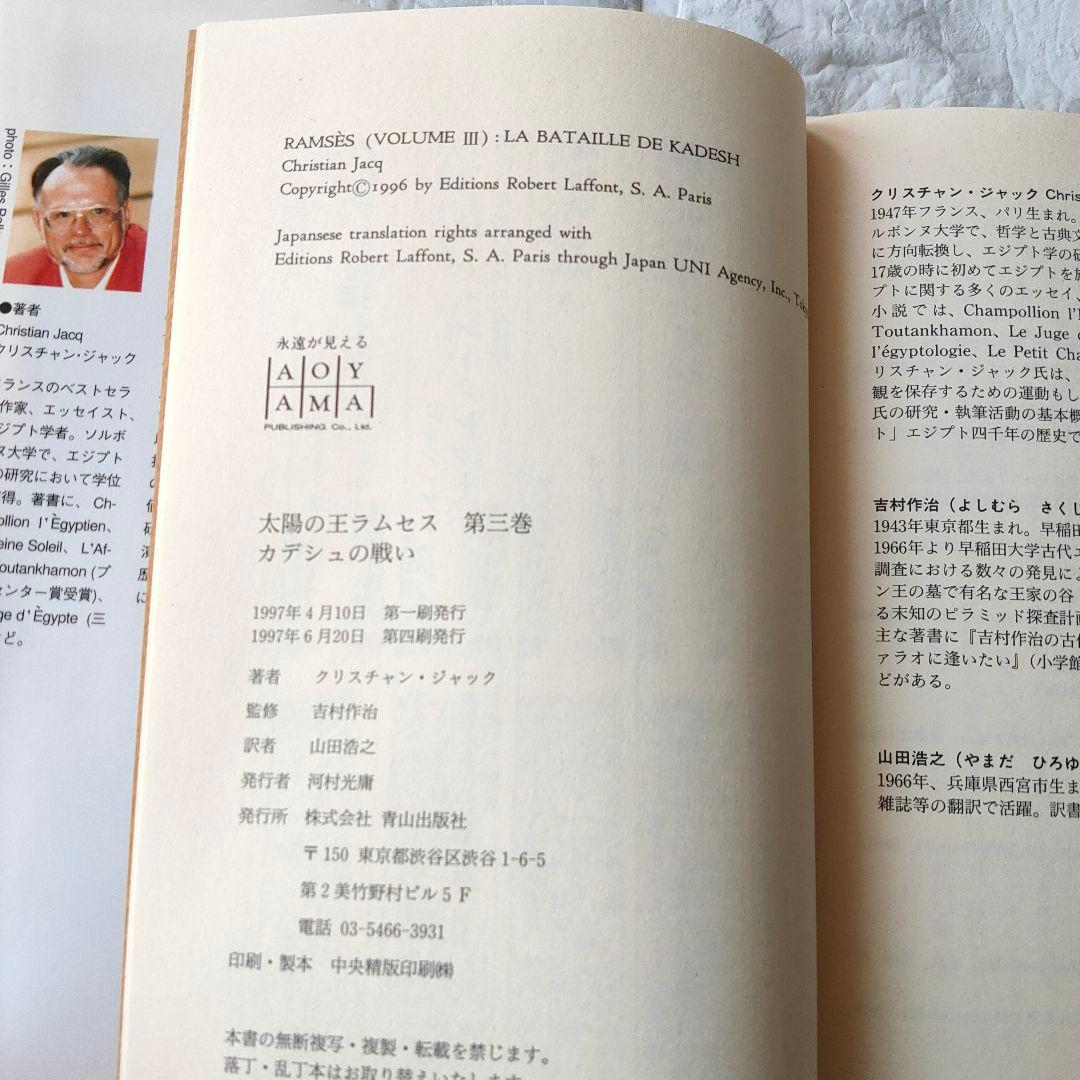 photo : Gilles
●著者
Christian Jacq
クリスチャン・ジャック
ランスのベストセラ
作家、エッセイスト、
ジプト学者。ソルボ
ヌ大学で、エジプト
の研究において学位
得。著書に、Ch-
ollion l'Ègyptien,
eine Soleil、L'Af-
outankhamon (ブ
センター賞受賞)、
ge d'Ègypte (三
ど。
RAMSÈS (VOLUME III) : LA BATAILLE DE KADESH
Christian Jacq
Copyright©1996 by Editions Robert Laffont, S. A. Paris
Japansese translation rights arranged with
Editions Robert Laffont, S. A. Paris through Japan UNI Agency, Inc.,
永遠が見える
AOY
AMA
PUBLISHING Co., Ltd.
太陽の王ラムセス 第三巻
カデシュの戦い
1997年4月10日 第一刷発行
1997年6月20日 第四刷発行
著者 クリスチャン・ジャック
監修 吉村作治
訳者 山田浩之
発行者 河村光庸
発行所 株式会社 青山出版社
〒150 東京都渋谷区渋谷1-6-5
第2美竹野村ビル5F
電話 03-5466-3931
印刷・製本 中央精版印刷㈱
本書の無断複写・複製・転載を禁じます。
落丁・乱丁本はお取り替えいたします
クリスチャン・ジャック Chris
1947年フランス、パリ生まれ。
ルボンヌ大学で、哲学と古典文
に方向転換し、エジプト学の研
17歳の時に初めてエジプトを旅
プトに関する多くのエッセイ、
小説では、Champollion l'
Toutankhamon、Le Juge
l'égyptologie、Le Petit Cha
リスチャン・ジャック氏は、
観を保存するための運動もし
氏の研究・執筆活動の基本概
ト」エジプト四千年の歴史で
吉村作治（よしむら さくじ
1943年東京都生まれ。早稲田
1966年より早稲田大学古代エ
調査における数々の発見によ
ン王の墓で有名な王家の谷
る未知のピラミッド探査計画
主な著書に『吉村作治の古代
ァラオに逢いたい』（小学館
どがある。
山田浩之（やまだ ひろゆ
1966年、兵庫県西宮市生ま
雑誌等の翻訳で活躍。訳書